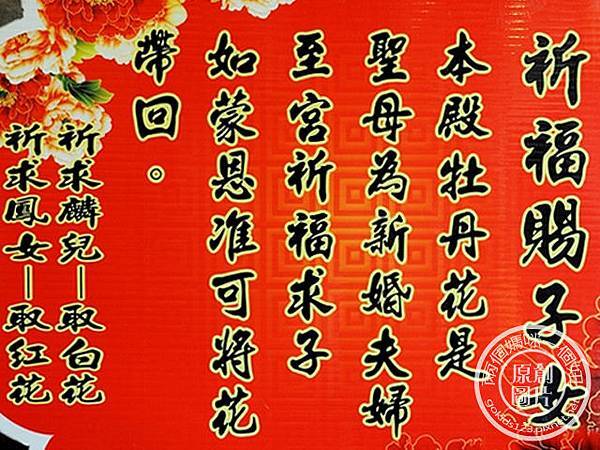 祈福賜子女
本殿牡丹花是
聖母為新婚夫婦
至宮祈福求子
如蒙恩准可將花
帶回。
祈求麟兒—取白花
祈求鳳女—取紅花
原創
圖片